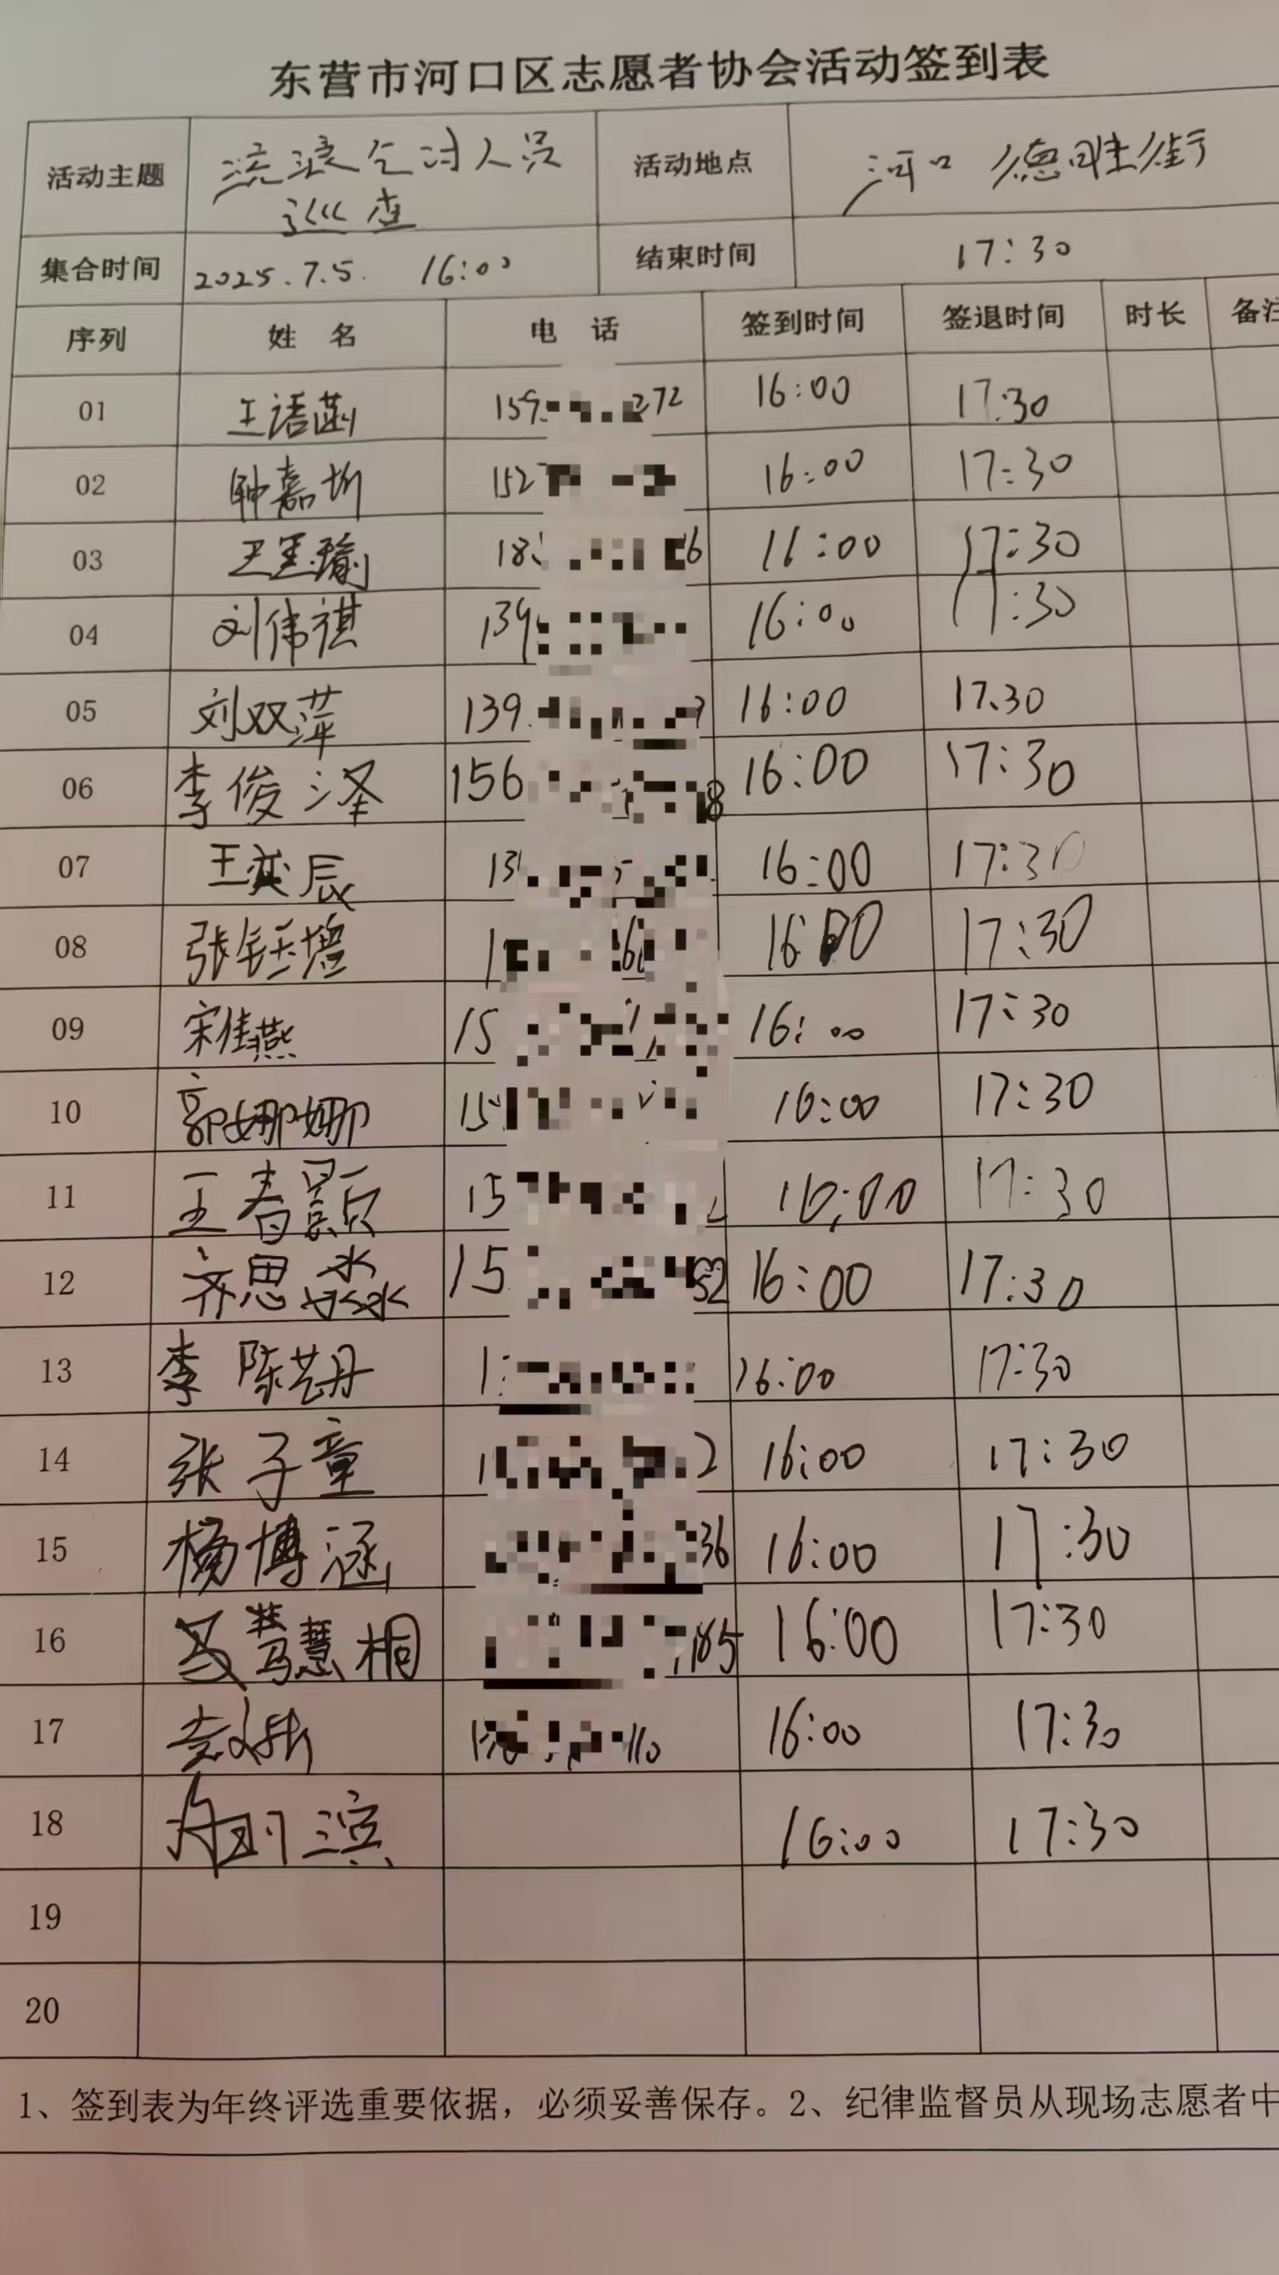 东营市河口区志愿者协会活动签到表
活动主题 流浪乞讨人员巡查 活动地点 河口 德胜街
集合时间 2025.7.5. 16:00 结束时间 17:30
序列 姓 名 电 话 签到时间 签退时间 时长 备注
01 王语菡 159 272 16:00 17:30
02 钟嘉 152 16:00 17:30
03 王 瑜 18 6 16:00 17:30
04 刘伟祺 139 16:00 17:30
05 刘双萍 139 16:00 17.30
06 李俊泽 156 8 16:00 17:30
07 王奕辰 13 16:00 17:30
08 张钰增 1 16:00 17:30
09 宋佳燕 15 16:00 17:30
10 郭娜娜 15 16:00 17:30
11 王春颖 15 16:00 17:30
12 齐思淼 15 52 16:00 17:30
13 李陈艺丹 1 16:00 17:30
14 张子童 1 2 16:00 17:30
15 杨博涵 36 16:00 17:30
16 慧桐 185 16:00 17:30
17 110 16:00 17:30
18 滨 16:00 17:30
19
20
1、签到表为年终评选重要依据，必须妥善保存。2、纪律监督员从现场志愿者中